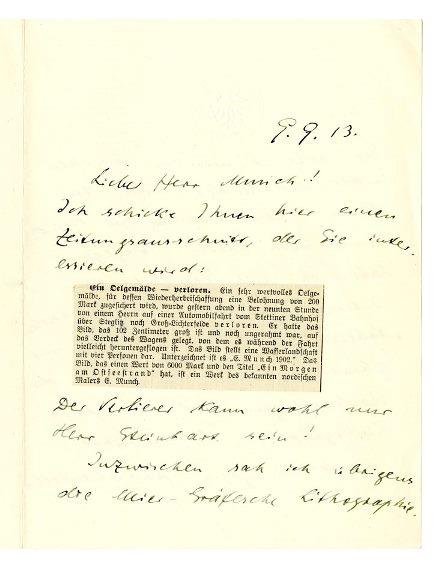 9. 9. 13.
Lieber Herr Munch!
Ich schicke Ihnen hier einen
Zeitungsausschnitt, der Sie inter-
essieren wird:
Ein Oelgemälde — verloren. Ein sehr wertvolles Oelge-
mälde, für dessen Wiederherbeischaffung eine Belohnung von 200
Mark zugesichert wird, wurde gestern abend in der neunten Stunde
von einem Herrn auf einer Automobilfahrt vom Stettiner Bahnhof
über Steglitz nach Groß-Lichterfelde verloren. Er hatte das
Bild, das 102 Zentimeter groß ist und noch ungerahmt war, auf
das Verdeck des Wagens gelegt, von dem es während der Fahrt
vielleicht heruntergeflogen ist. Das Bild stellt eine Wasserlandschaft
mit vier Personen dar. Unterzeichnet ist es „E. Munch 1902." Das
Bild, das einen Wert von 6000 Mark und den Titel „Ein Morgen
am Ostseestrand" hat, ist ein Werk des bekannten nordischen
Malers E. Munch.
Der Verlierer kann wohl nur
Herr Steinhart sein!
Inzwischen sah ich übrigens
die Meier-Gräfesche Lithographie.